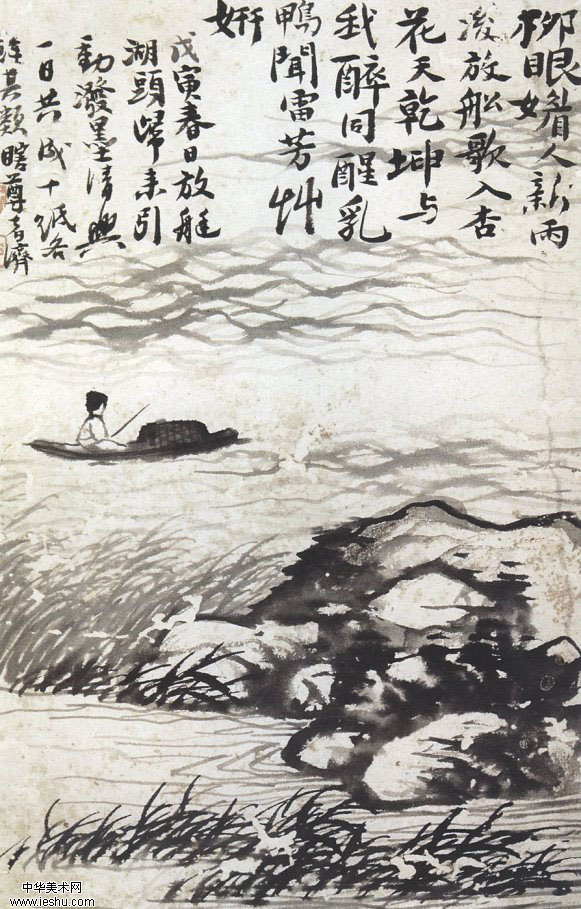 柳眼看人新雨
後放船歌入杏
花天乾坤与
我醉同醒乳
鴨聞雷芳艸
妍
戊寅春日放艇
湖頭歸来引
動潑墨清興
一日共成十紙各
其類瞎尊者濟
中华美术网
www.ieshu.com